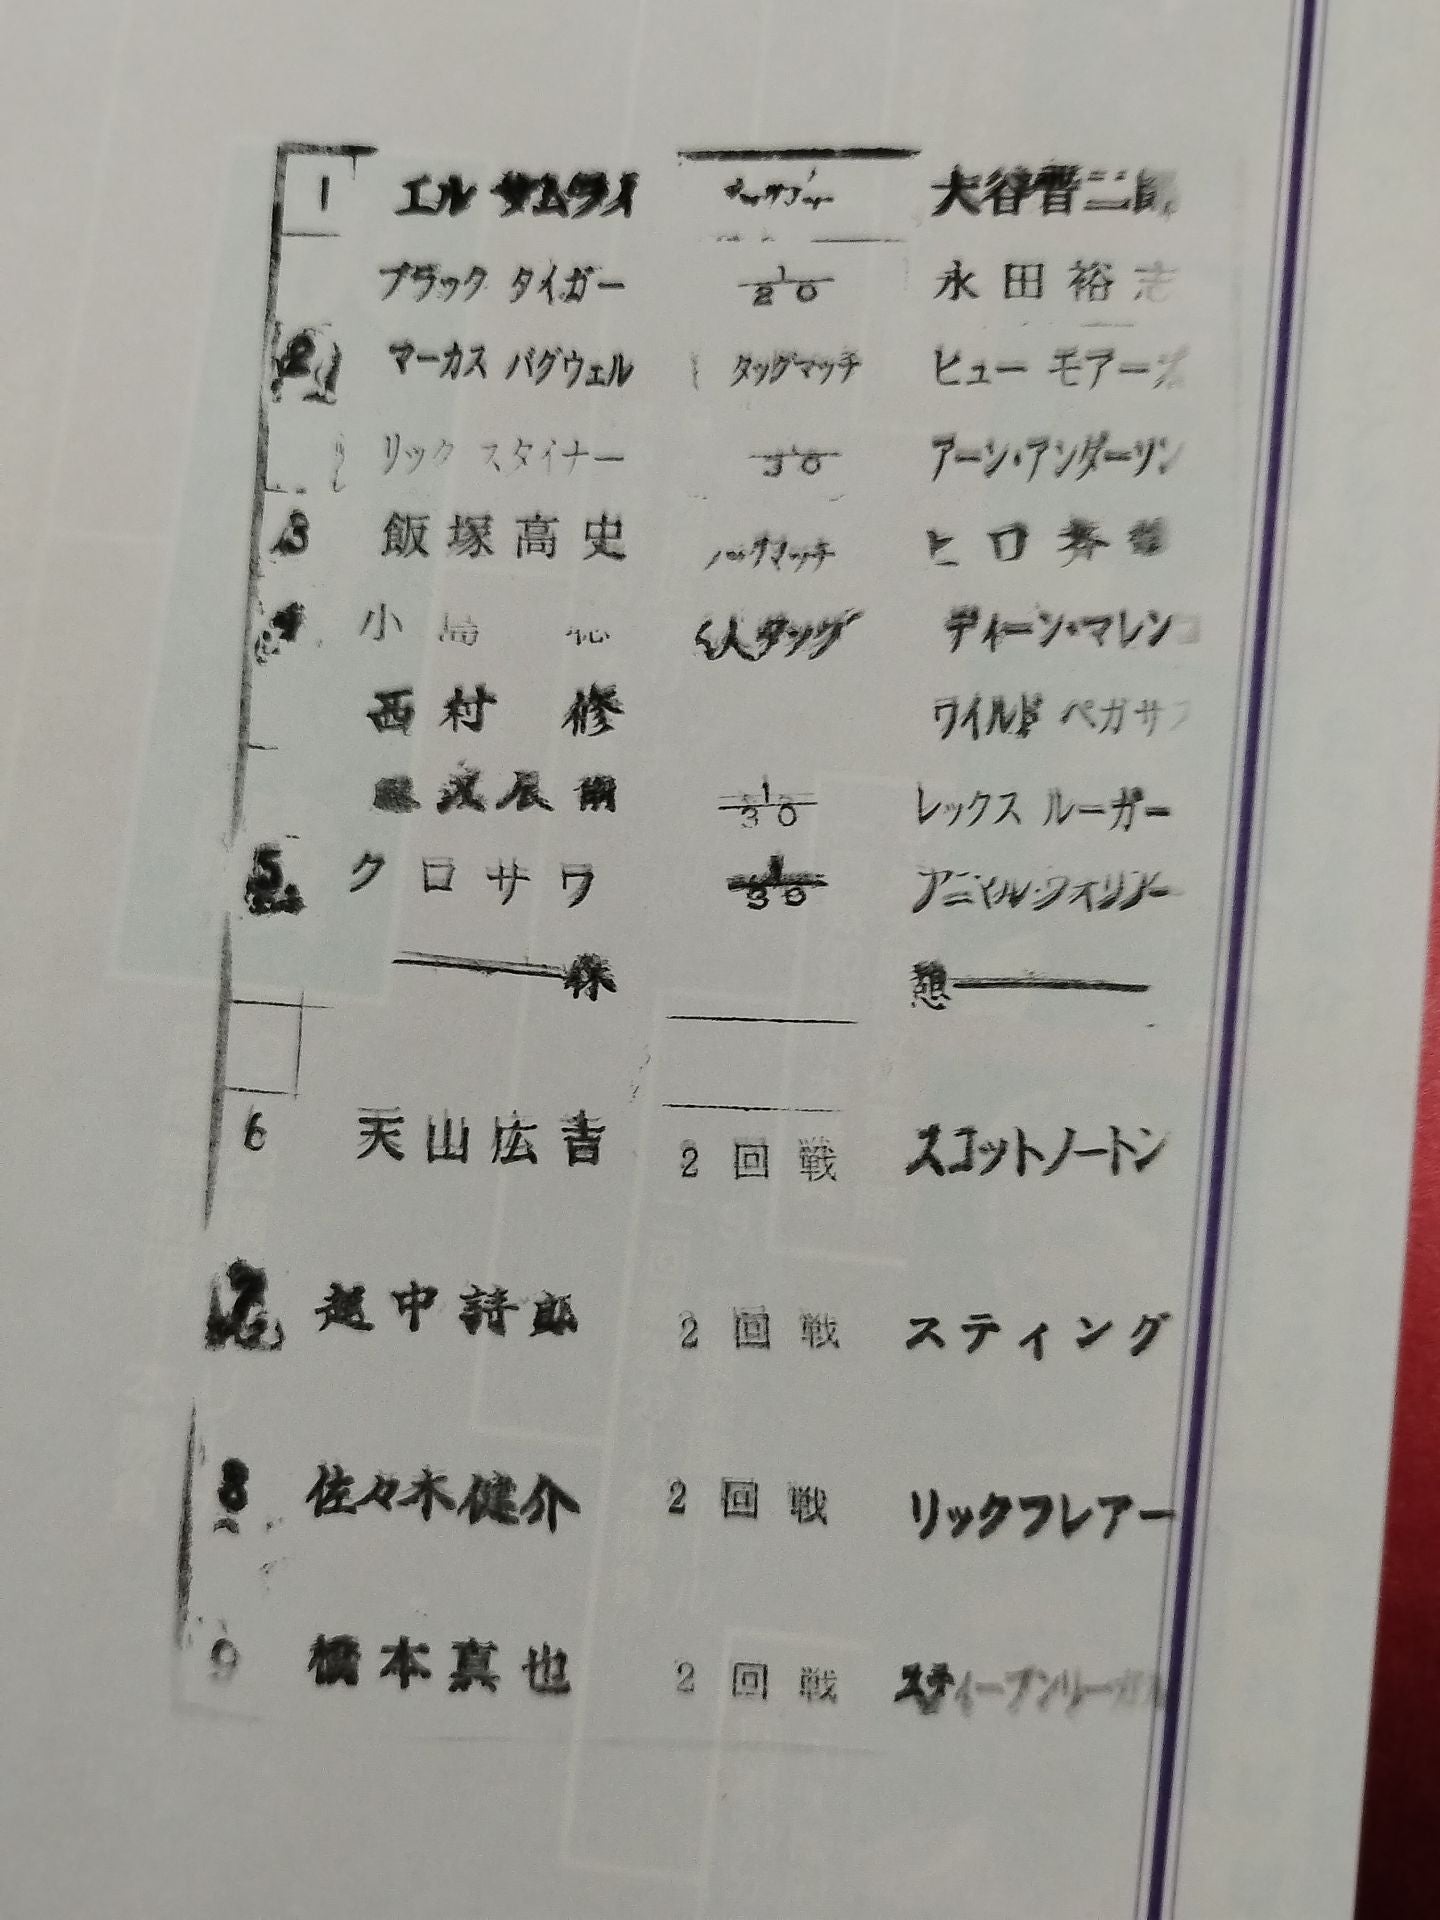 1 エル サムライ タッグマッチ 大谷晋二郎
ブラック タイガー 1/20 永田裕志
2 マーカス バグウェル タッグマッチ ヒュー モアー
リック スタイナー 1/30 アーン・アンダーソン
3 飯塚高史 タッグマッチ ヒロ斉藤
4 小島 聡 6人タッグ ディーン・マレンコ
西村 修 ワイルド ペガサス
1/30 レックス ルーガー
5 クロサワ 1/30 アニマル・ウォリアー
休 憩
6 天山広吉 2回戦 スコットノートン
7 越中詩郎 2回戦 スティング
8 佐々木健介 2回戦 リックフレアー
9 橋本真也 2回戦 スティーブンリーガル